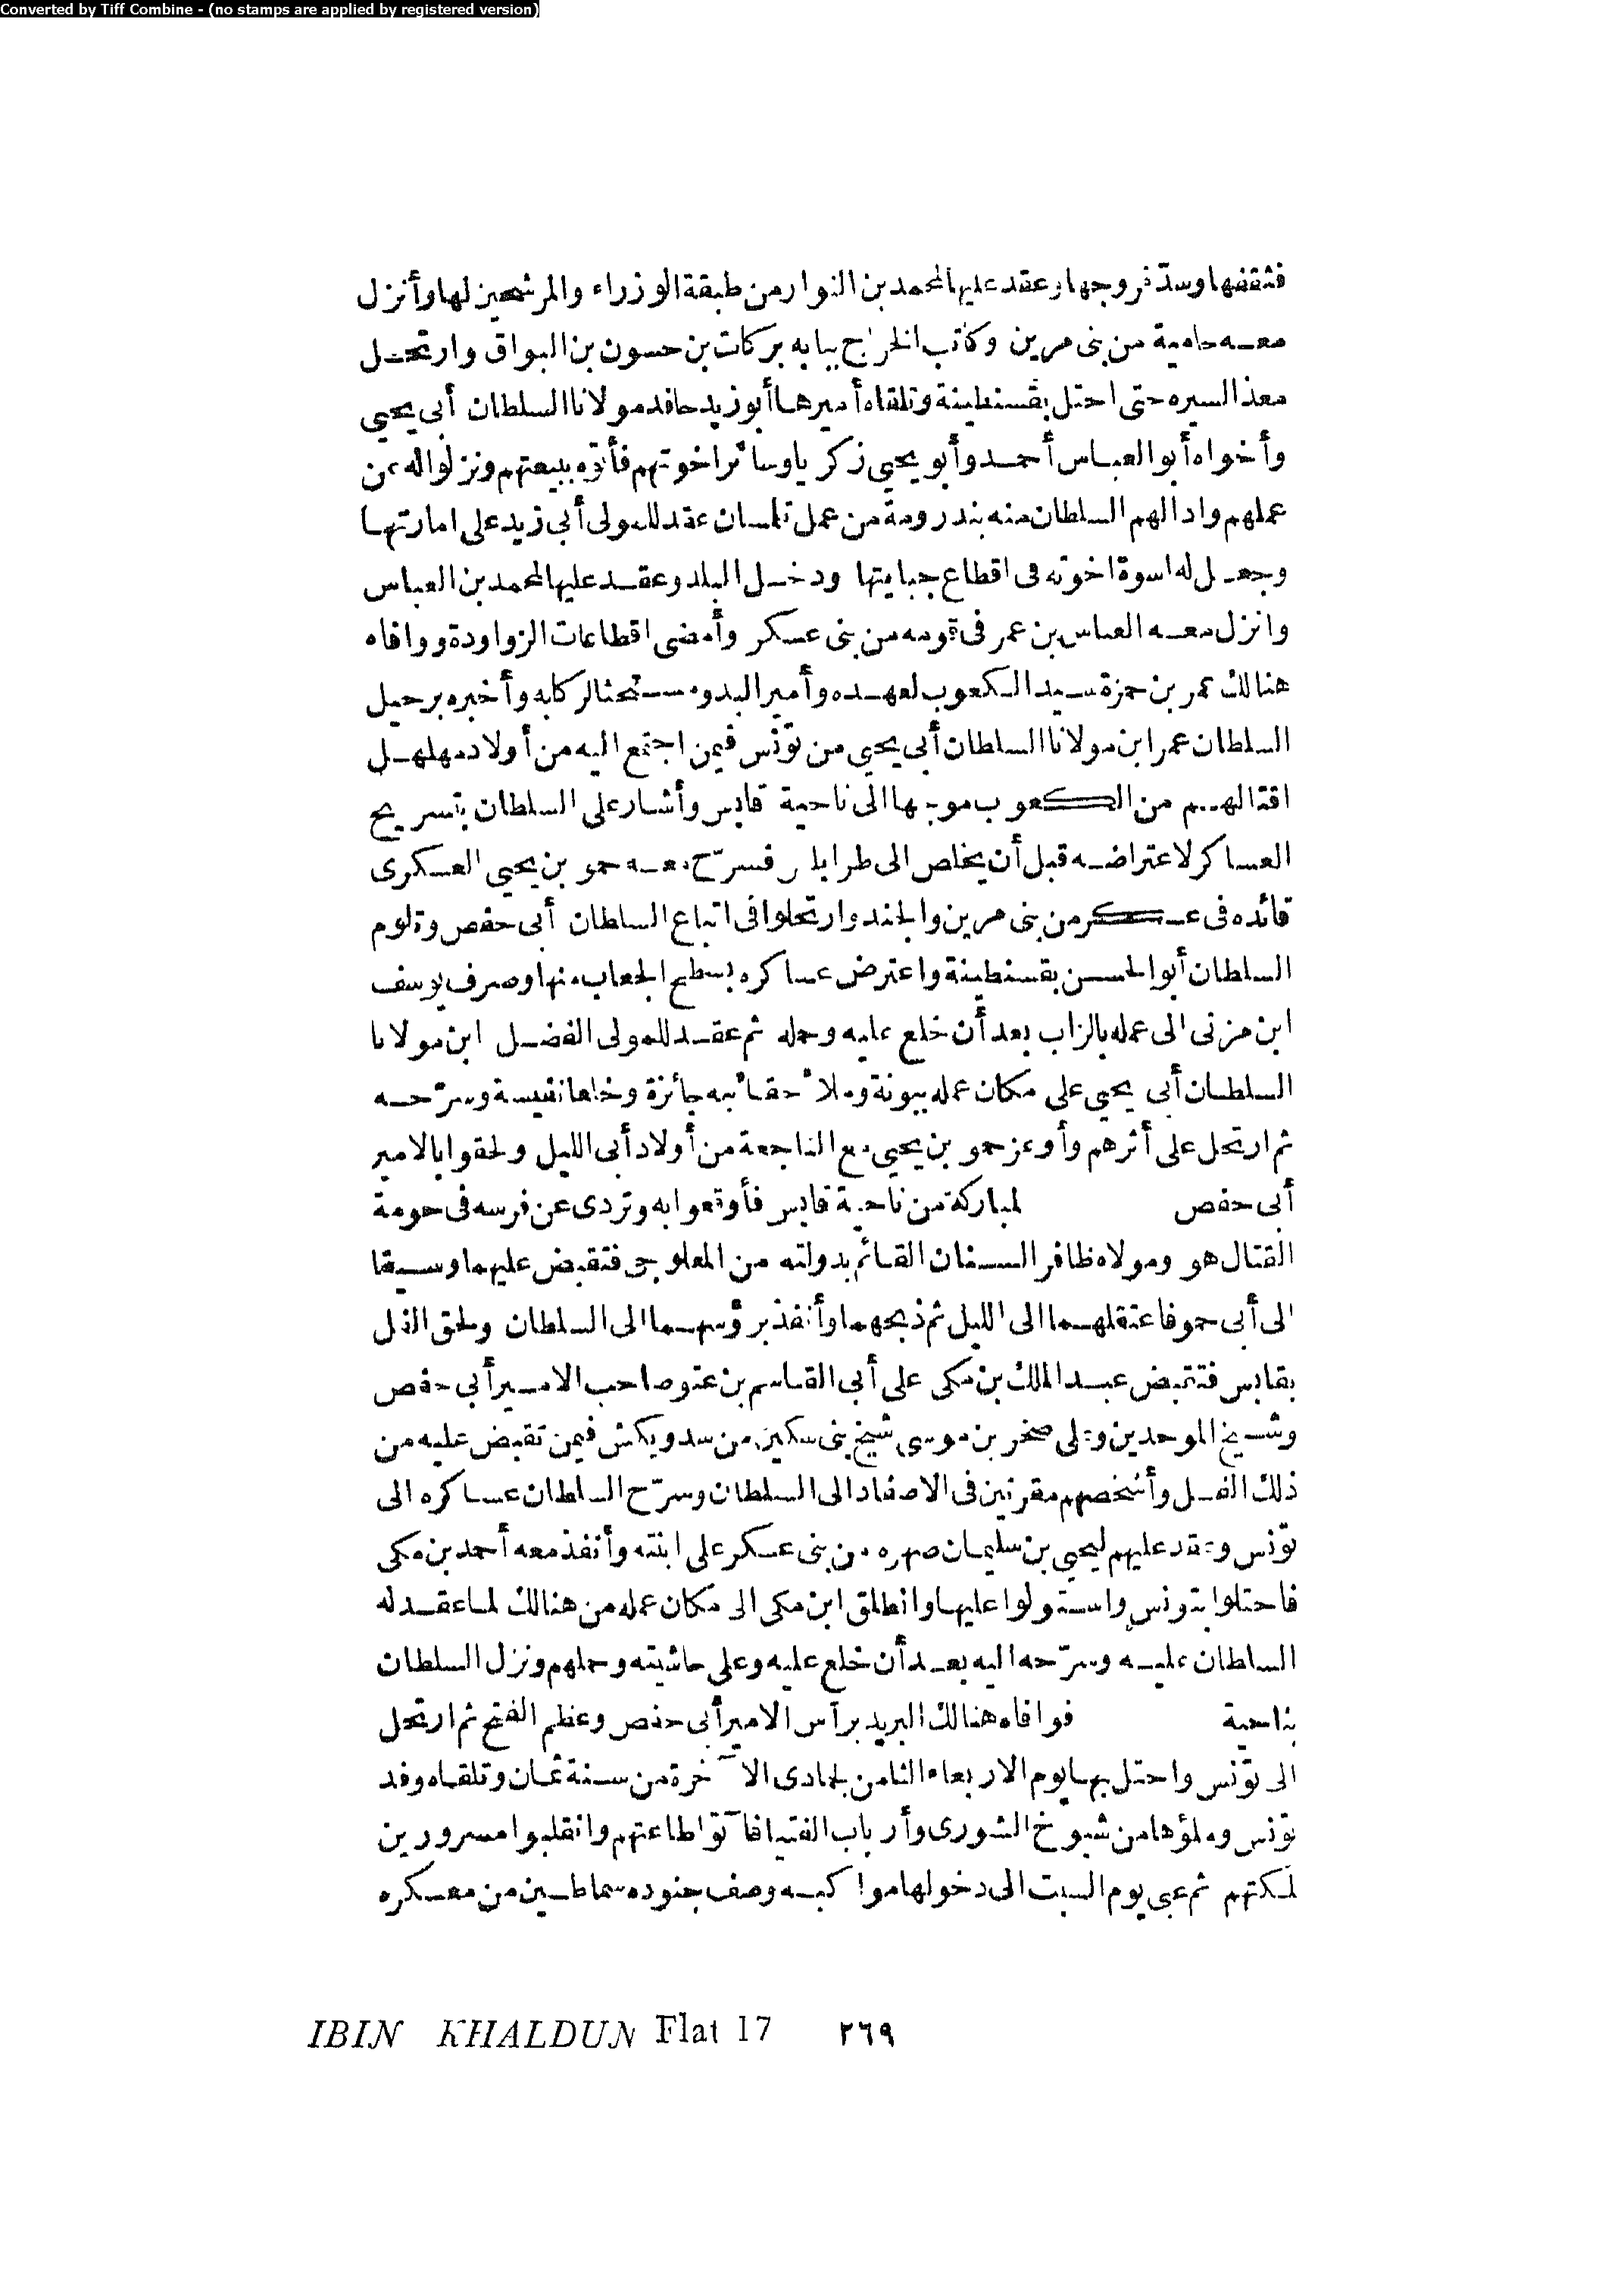 Converted by Tiff Combine - (no stamps are applied by registered version)
فثقفها وسدّ فروجها وعقد عليها لمحمد بن النوار من طبقة الوزراء والمرشحين لها وأنزل
معه حامية من بنى مرين وكاتب الخراج ببابه بركات بن حسون بن البواق وارتحل
معذ السيره حتى احتل بقسنطينة وتلقاه أميرها أبو زيد حافد مولانا السلطان أبى يحيى
وأخواه أبو العباس أحمد وأبو يحيى زكريا وسائر اخوتهم فأتوه ببيعتهم ونزلوا له عن
عملهم وادالهم السلطان منه بندرومة من عمل تلمسان عقد للمولى أبى زيد على امارتها
وجعل له اسوة اخوته فى اقطاع جبايتها ودخل البلد وعقد عليها لمحمد بن العباس
وانزل معه العباس بن عمر فى قومه من بنى عسكر وأمضى اقطاعات الزواودة ووافاه
هنالك عمر بن حمزة سيد الكعوب لعهده وأمير البدو مستحثا لركابه وأخبره برحيل
السلطان عمر ابن مولانا السلطان أبى يحيى من تونس فيمن اجتمع اليه من أولاد مهلهل
اقتالهم من الكعوب موجها الى ناحية قابس وأشار على السلطان بتسريح
العساكر لاعتراضه قبل أن يخلص الى طرابلس فسرّح معه حمو بن يحيى العسكرى
قائده فى عسكر من بنى مرين والجند وارتحلوا فى اتباع السلطان أبى حفص وتلوم
السلطان أبو الحسن بقسنطينة واعترض عساكره بسطح الجعاب منها وصرف يوسف
ابن مزنى الى عمله بالزاب بعد أن خلع عليه وحمله ثم عقد للمولى الفضل ابن مولانا
السلطان أبى يحيى على مكان عمله ببونة وملأ حقائبه جائزة وخلعا نفيسة وسرّحه
ثم ارتحل على أثرهم وأوعز حمو بن يحيى مع الناجعة من أولاد أبى الليل ولحقوا بالامير
أبى حفص لمباركة من ناحية قابس فأوقعوا به وتردى عن فرسه فى حومة
القتال هو ومولاه ظافر السنان القائم بدولته من المعلوجى فتقبض عليهما وسيقا
الى أبى حمو فاعتقلهما الى الليل ثم ذبحهما وأنفذ برؤسهما الى السلطان ولحق الفل
بقابس فتقبض عبد الملك بن مكى على أبى القاسم بن عتو صاحب الامير أبى حفص
وشيخ الموحدين وعلى صخر بن موسى شيخ بنى سكين من سدويكش فيمن تقبض عليه من
ذلك الفل وأشخصهم مقرنين فى الاصفاد الى السلطان وسرّح السلطان عساكره الى
تونس وعقد عليهم ليحيى بن سليمان صهره من بنى عسكر على ابنته وأنفذ معه أحمد بن مكى
فاحتلوا بتونس واستولوا عليها وانطلق ابن مكى الى مكان عمله من هنالك لما عقد له
السلطان عليه وسرّحه اليه بعد أن خلع عليه وعلى حاشيته وحملهم ونزل السلطان
بناحية فوافاه هنالك البريد برأس الامير أبى حفص وعظم الفتح ثم ارتحل
الى تونس واحتل بها يوم الاربعاء الثامن لجمادى الآخرة من سنة ثمان وتلقاه وفد
تونس وملؤها من شيوخ الشورى وأرباب الفتيا فآتوا طاعتهم وانقلبوا مسرورين
لمكتهم ثم عبى يوم السبت الى دخولها مواكبه وصف جنوده سماطين من معسكره
IBIN KHALDUN Flat 17 ٢٦٩